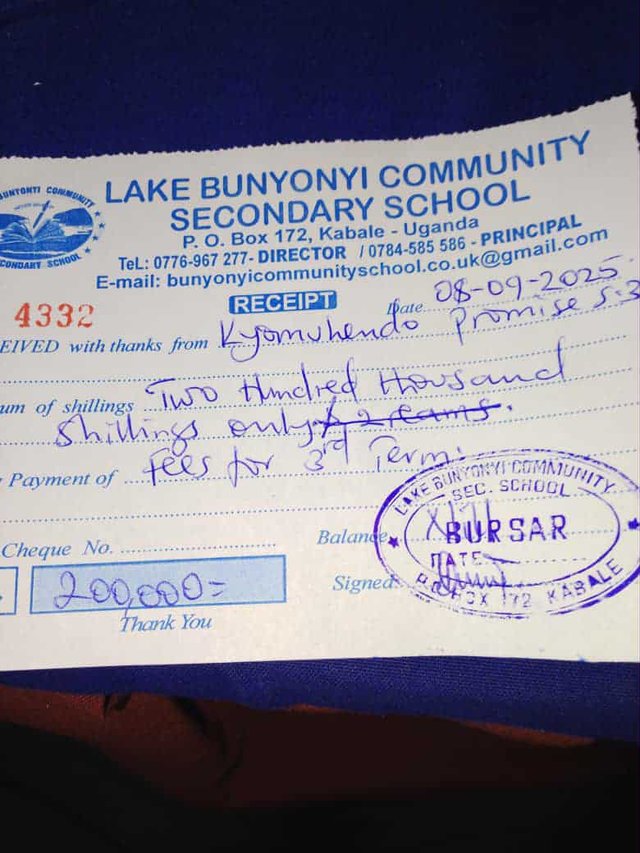 LAKE BUNYONYI COMMUNITY
SECONDARY SCHOOL
P. O. Box 172, Kabale - Uganda
TeL: 0776-967 277- DIRECTOR / 0784-585 586 - PRINCIPAL
E-mail: bunyonyicommunityschool.co.uk@gmail.com
BUNYONYI COMMUNITY
SECONDARY SCHOOL
RECEIPT
Date 08-09-2025.
4332
EIVED with thanks from Kyomuhendo Promise S.3
um of shillings Two Hundred thousand
Shillings only & 2 reams.
Payment of Fees for 3rd Term.
LAKE BUNYONYI COMMUNITY
SEC. SCHOOL
Balance
BURSAR
DATE
P.O. BOX 172 KABALE
Cheque No.
Signed
200,000=
Thank You